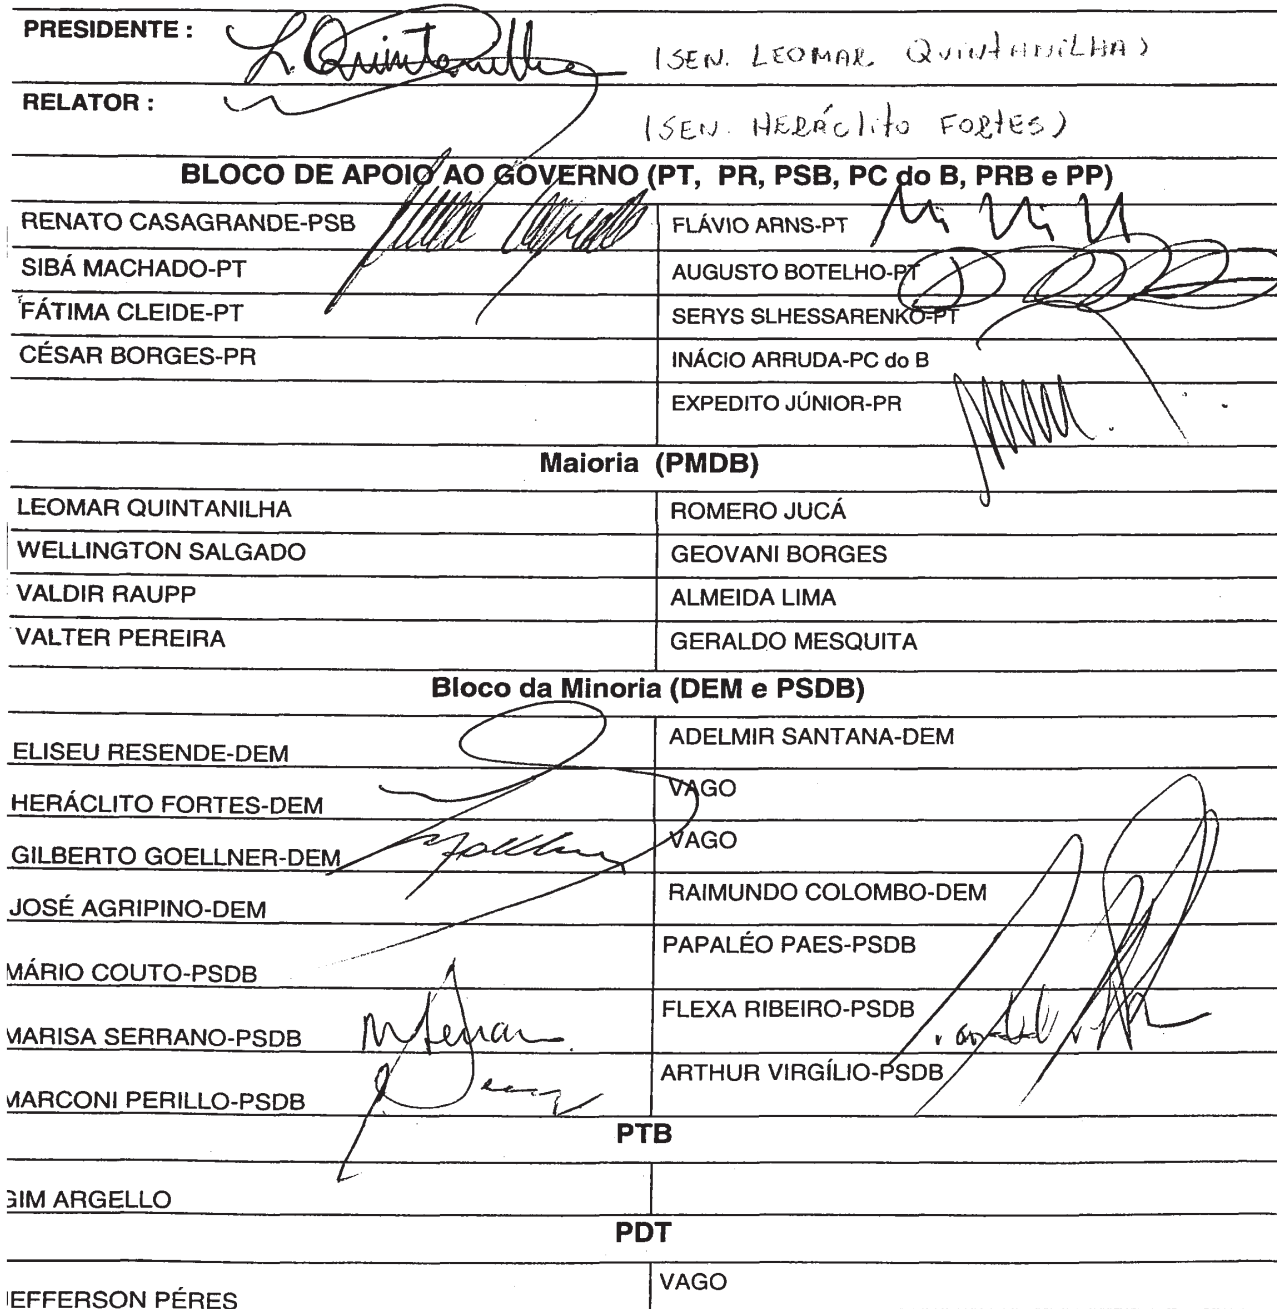 PRESIDENTE : L. Quintanilha (SEN. LEOMAR QUINTANILHA)
RELATOR : (SEN. HERÁCLITO FORTES)
BLOCO DE APOIO AO GOVERNO (PT, PR, PSB, PC do B, PRB e PP)
RENATO CASAGRANDE-PSB FLÁVIO ARNS-PT
SIBÁ MACHADO-PT AUGUSTO BOTELHO-PT
FÁTIMA CLEIDE-PT SERYS SLHESSARENKO-PT
CÉSAR BORGES-PR INÁCIO ARRUDA-PC do B
EXPEDITO JÚNIOR-PR
Maioria (PMDB)
LEOMAR QUINTANILHA ROMERO JUCÁ
WELLINGTON SALGADO GEOVANI BORGES
VALDIR RAUPP ALMEIDA LIMA
VALTER PEREIRA GERALDO MESQUITA
Bloco da Minoria (DEM e PSDB)
ELISEU RESENDE-DEM ADELMIR SANTANA-DEM
HERÁCLITO FORTES-DEM VAGO
GILBERTO GOELLNER-DEM VAGO
JOSÉ AGRIPINO-DEM RAIMUNDO COLOMBO-DEM
MÁRIO COUTO-PSDB PAPALÉO PAES-PSDB
MARISA SERRANO-PSDB FLEXA RIBEIRO-PSDB
MARCONI PERILLO-PSDB ARTHUR VIRGÍLIO-PSDB
PTB
GIM ARGELLO
PDT
JEFFERSON PÉRES VAGO